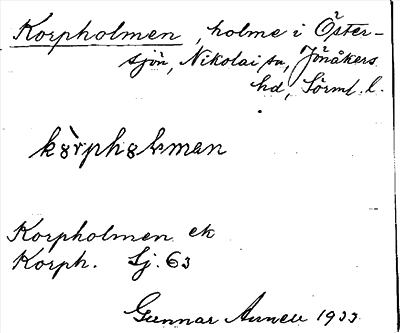 Korpholmen, holme i Öster-
sjön, Nikolai sn, Jönåkers
hd, Sörml. l.
Korpholmen ek
Korph. Sj. 63
Gunnar 1933